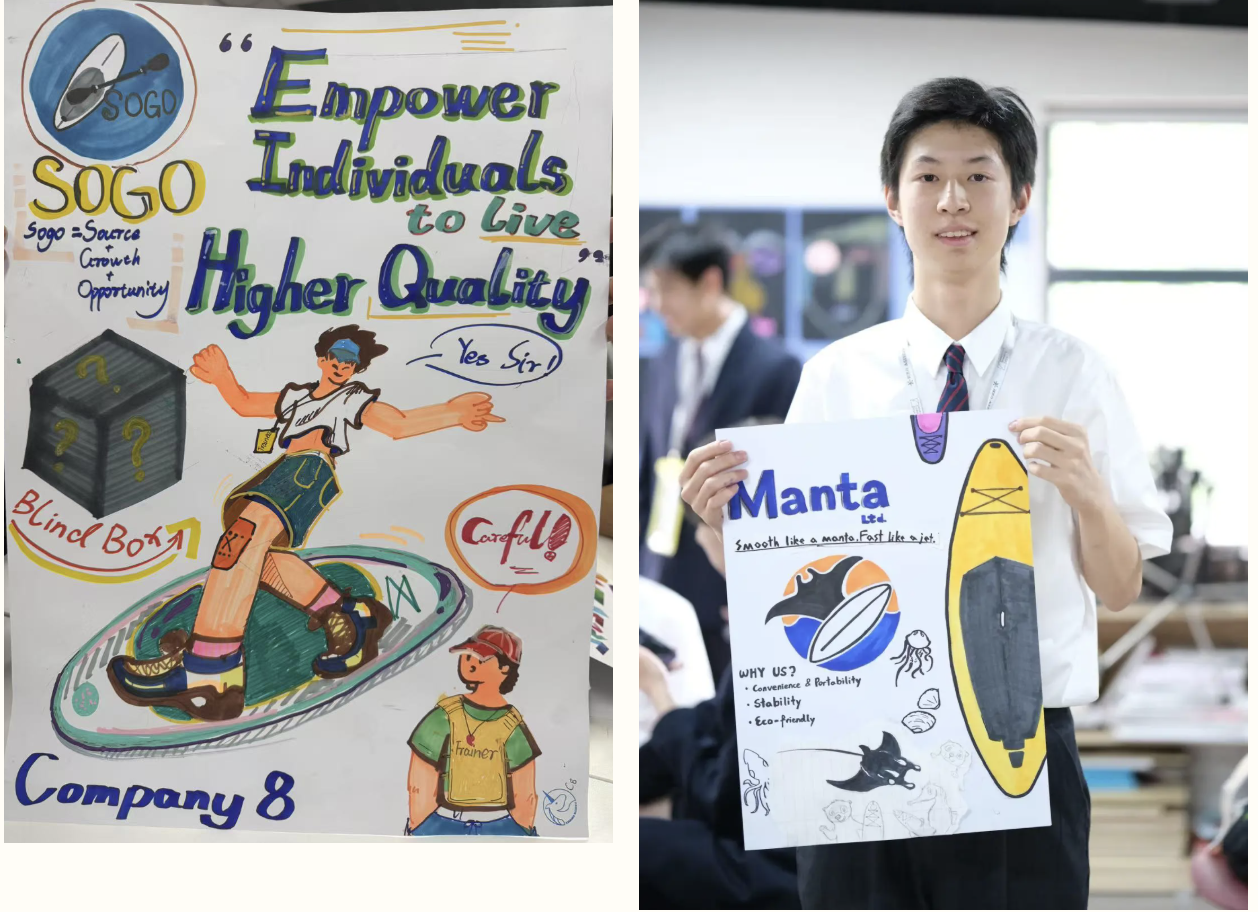 SOGO
SOGO
Sogo = Source
+
Growth
+
Opportunity
“ Empower
Individuals
to live
Higher Quality ”
Yes Sir!
? ? ?
Blind Box
Careful!
Trainer
Company 8
Manta
Ltd.
Smooth like a manta. Fast like a jet.
WHY US?
• Convenience & Portability
• Stability
• Eco-friendly